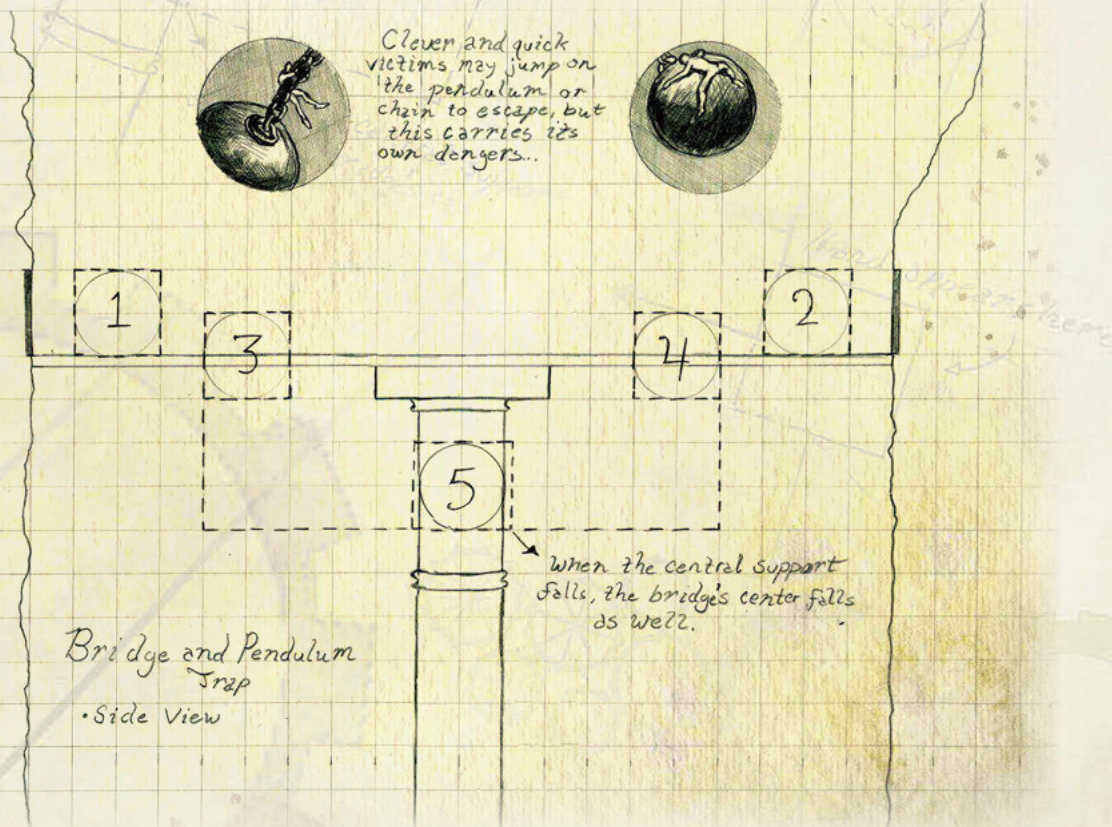 Clever and quick
victims may jump on
the pendulum or
chain to escape, but
this carries its
own dangers...
1
2
3
4
5
When the central support
falls, the bridge's center falls
as well.
Bridge and Pendulum
Trap
•Side View